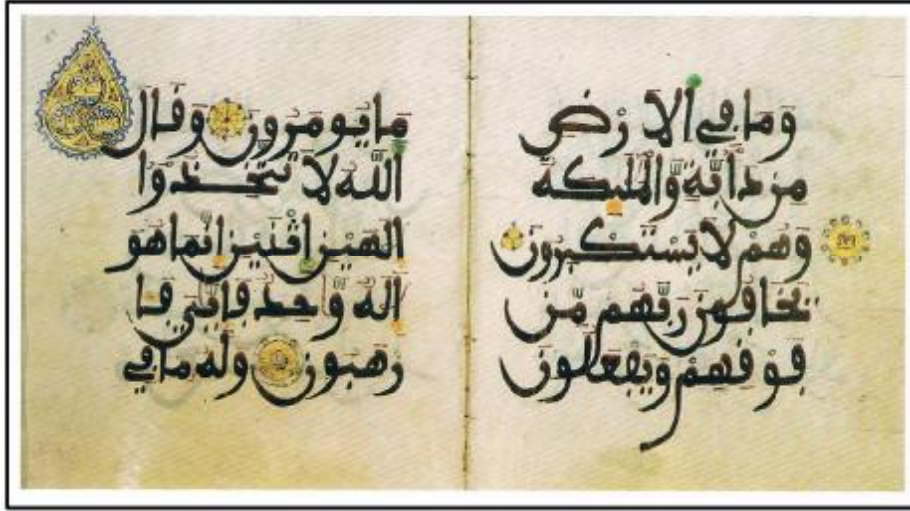 وَمَا فِي الارْضِ
مِن دَابَّةٍ وَّالْمَلَٰئِكَةُ
وَهُمْ لَا يَسْتَكْبِرُونَ
يَخَافُونَ رَبَّهُم مِّن
فَوْقِهِمْ وَيَفْعَلُونَ
مَا يُومَرُونَ وَقَالَ
اللَّهُ لَا تَتَّخِذُوا
الَٰهَيْنِ اثْنَيْنِ إنَّمَا هُوَ
الَٰهٌ وَّاحِدٌ فَإِيَّٰيَ فَا
رْهَبُونِ وَلَهُ مَا فِي